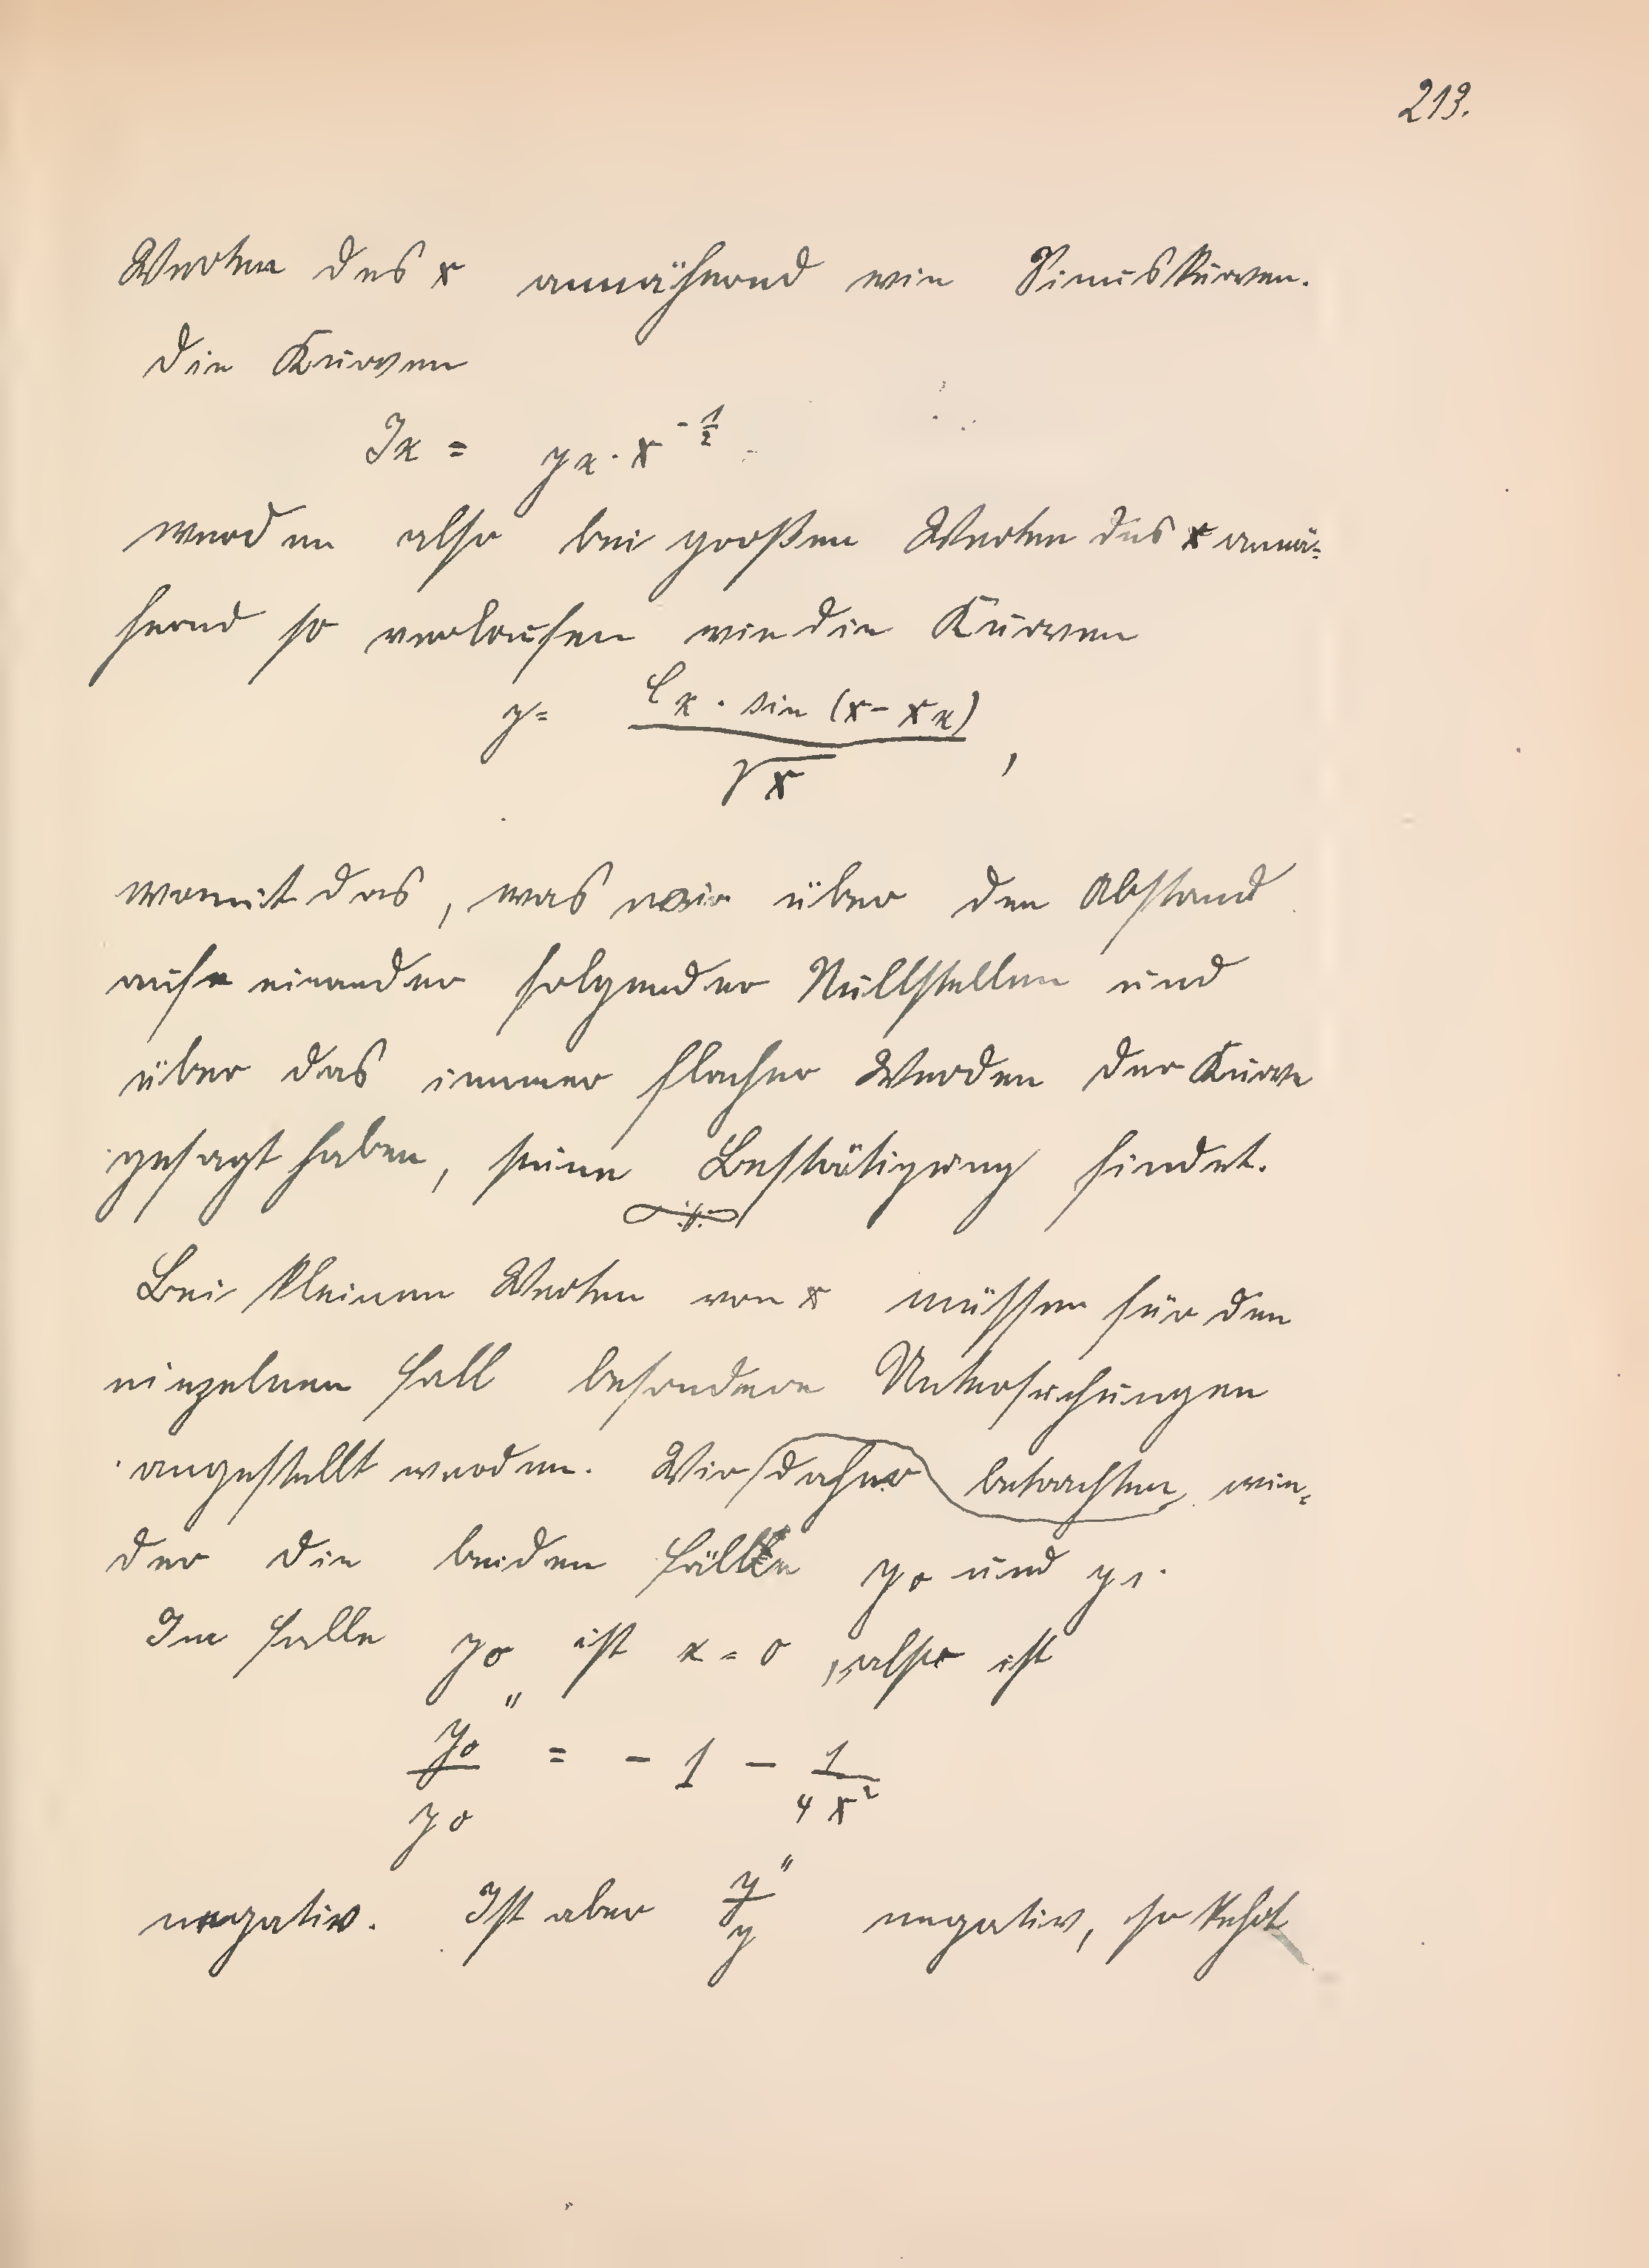 213.
Werten des x annähernd wie Sinuskurven.
Die Kurven
Jϰ = yϰ · x^{-1/2}
werden also bei großen Werten des x annä-
hernd so verlaufen wie die Kurven
y = \frac{Cϰ · sin (x - xϰ)}{\sqrt{x}} ,
womit das, was wir über den Abstand
aufeinander folgender Nullstellen und
über das immer flacher Werden der Kurve
gesagt haben, seine Bestätigung findet.
Bei kleinen Werten von x müssen für den
einzelnen Fall besondere Untersuchungen
angestellt werden. Wir daher betrachten wie-
der die beiden Fälle y₀ und y₁.
Im Falle y₀ ist ϰ = 0, also ist
\frac{y₀''}{y₀} = - 1 - \frac{1}{4x²}
negativ. Ist aber \frac{y''}{y} negativ, so kehrt